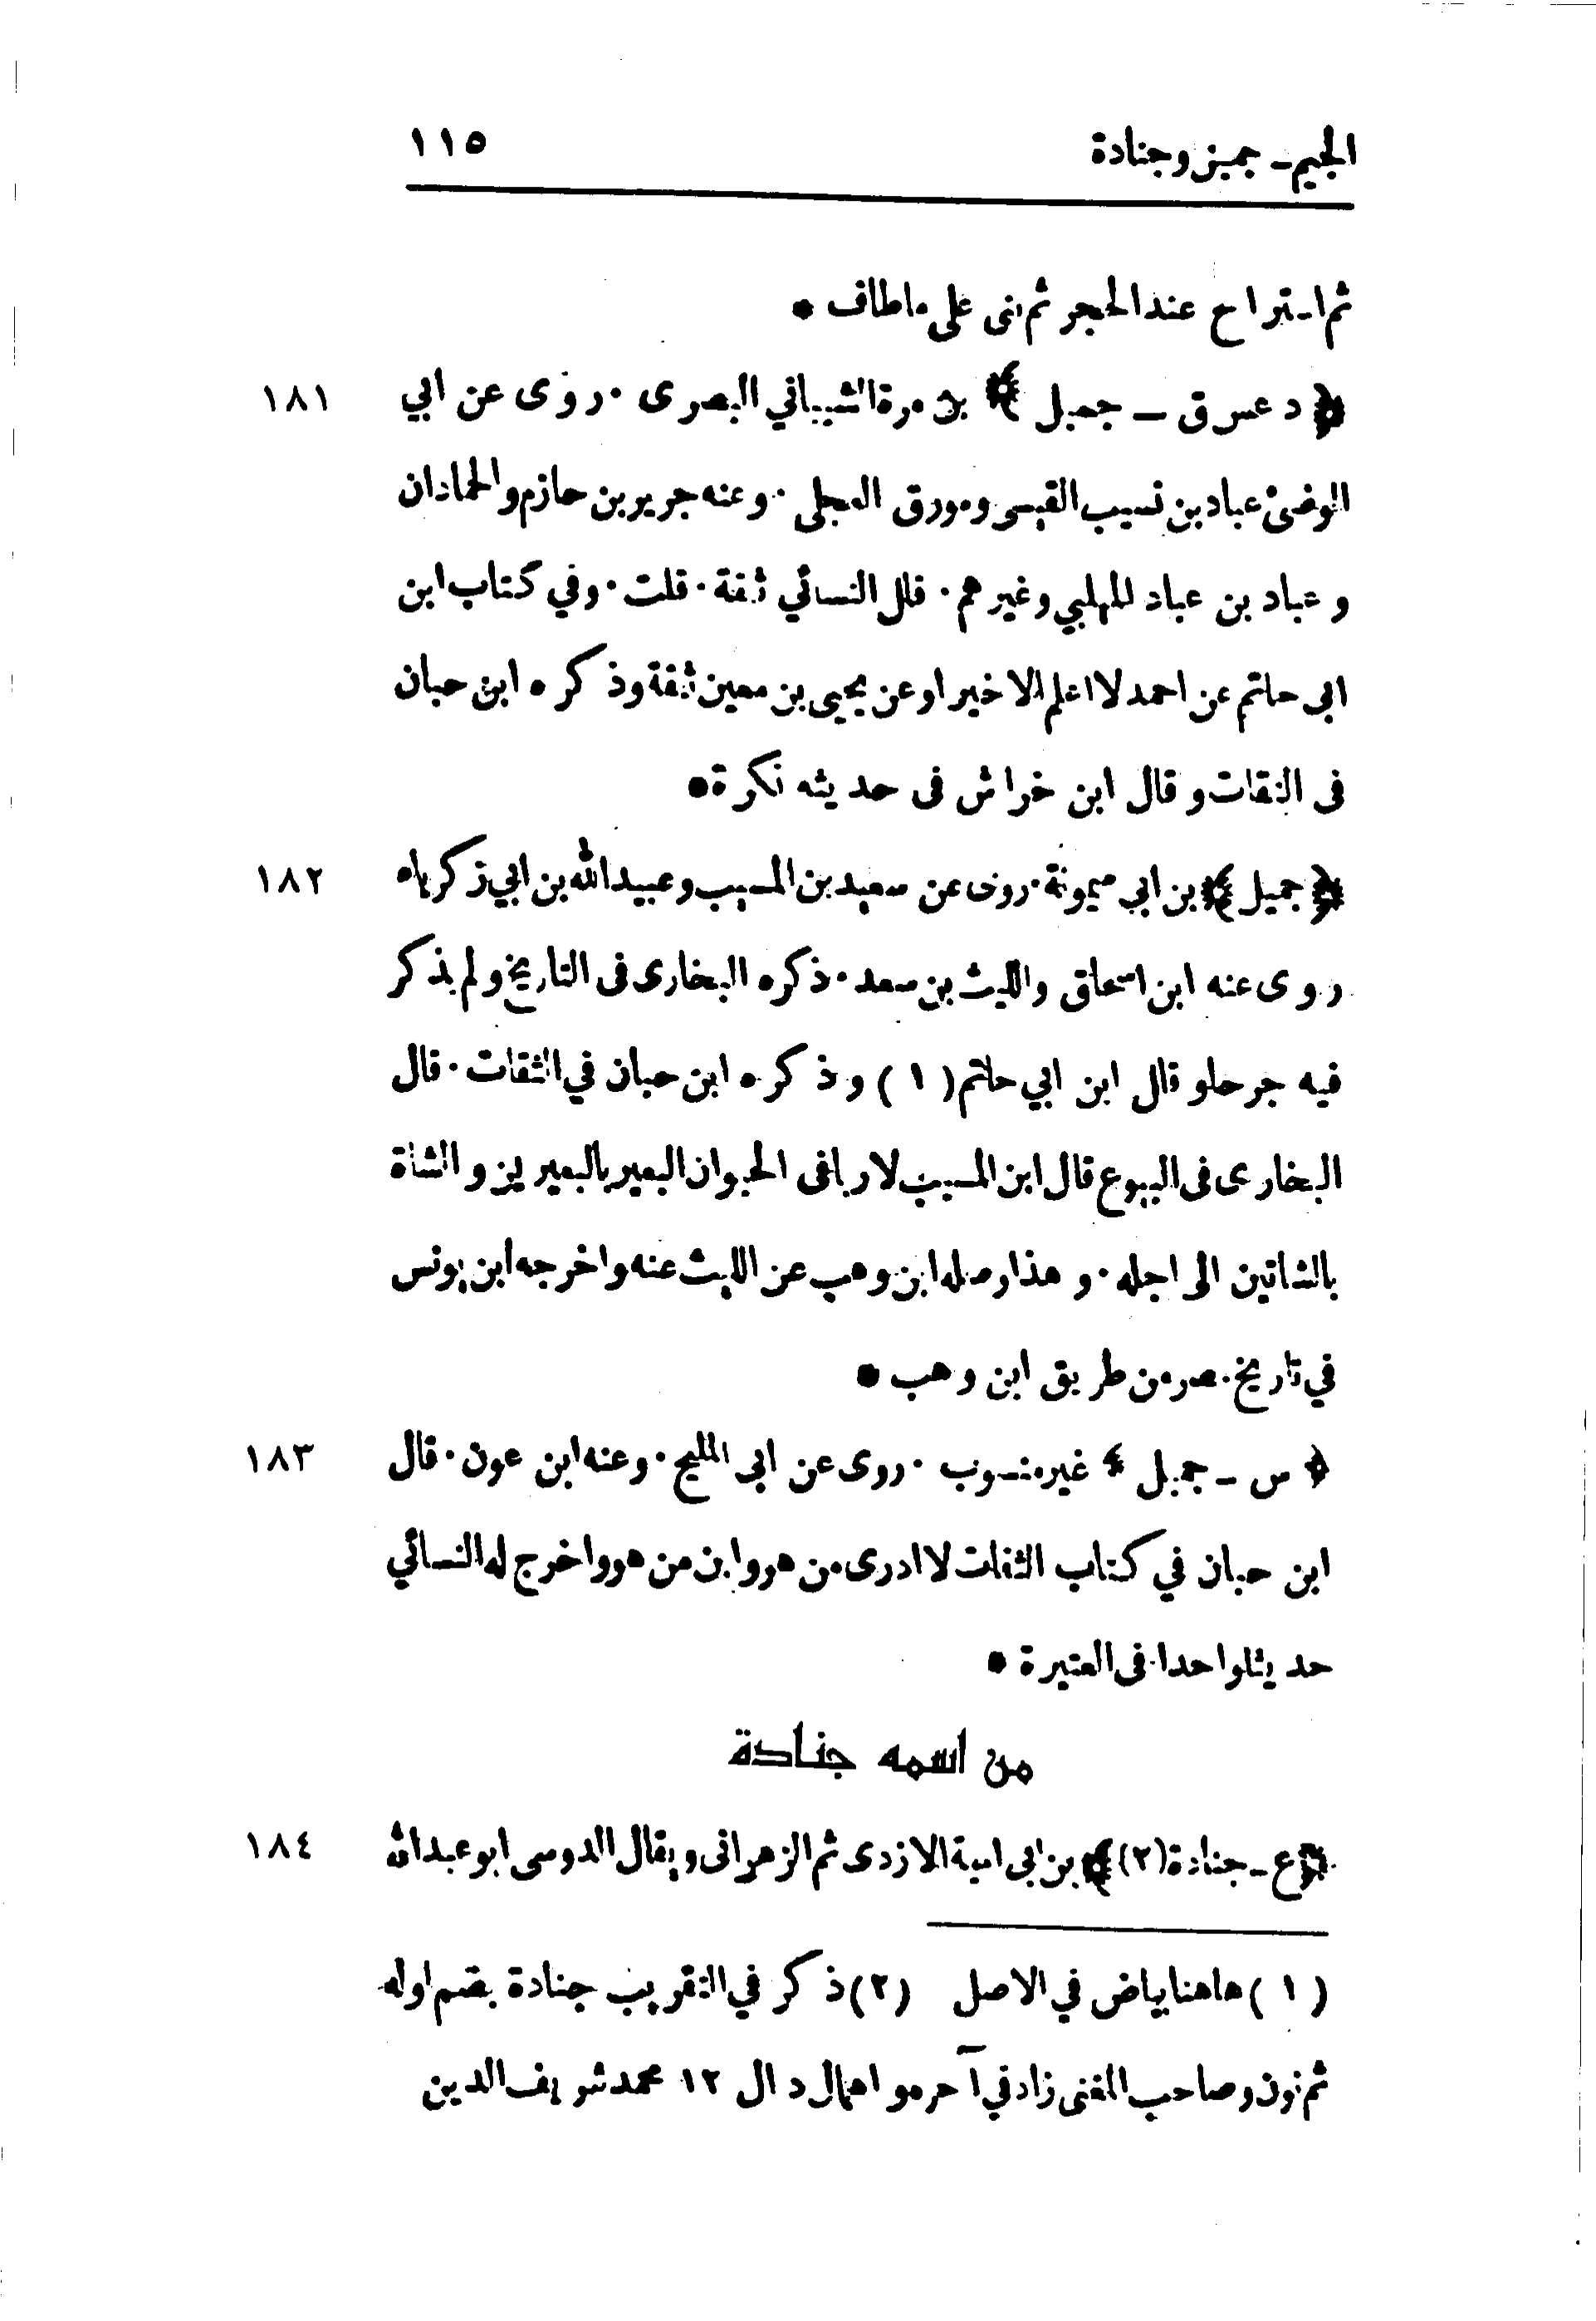 الجيم ـ جميز وجنادة ١١٥
ثم استراح عند الحجر ثم بنى على ما طاف *
﴿ د عس ق ـ جميل ﴾ بن مرة الشيباني البصرى . روى عن ابي ١٨١
الوضئ عباد بن نسيب القيسى ومورق العجلى . وعنه جرير بن حازم والحمادان
و عباد بن عباد المهلبي وغيرهم . قال النسائي ثقة . قلت . وفي كتاب ابن
ابى حاتم عن احمد لا اعلم الا خيرا وعن يحيى بن معين ثقة وذكره ابن حبان
فى الثقات و قال ابن خراش فى حديثه نكرة *
﴿ جميل ﴾ بن ابي ميمونة . روى عن سعيد بن المسيب وعبيد الله بن ابي زكرياء ١٨٢
روى عنه ابن اسحاق والليث بن سعد . ذكره البخارى فى التاريخ ولم يذكر
فيه جرحا و قال ابن ابي حاتم (١) وذكره ابن حبان في الثقات . قال
البخارى فى البيوع قال ابن المسيب لا ربا فى الحيوان البعير بالبعيرين والشاة
بالشاتين الى اجله . و هذا وصله ابن وهب عن الليث عنه واخرجه ابن يونس
في تاريخ مصر من طريق ابن وهب *
﴿ س ـ جميل ﴾ غير منسوب . روى عن ابى المليح . وعنه ابن عون . قال ١٨٣
ابن حبان في كتاب الثقات لا ادرى من هو وابن من هو واخرج له النسائي
حديثا واحدا فى العتيرة *
من اسمه جنادة
﴿ ع ـ جنادة (٢) ﴾ بن ابى امية الازدى ثم الزهرانى ويقال الدوسى ابو عبد الله ١٨٤
(١) هاهنا بياض في الاصل (٢) ذكر في التقريب جنادة بضم اوله
ثم نون وصاحب المغنى زاد في آخرمو اهمال دال ١٢ محمد شريف الدين